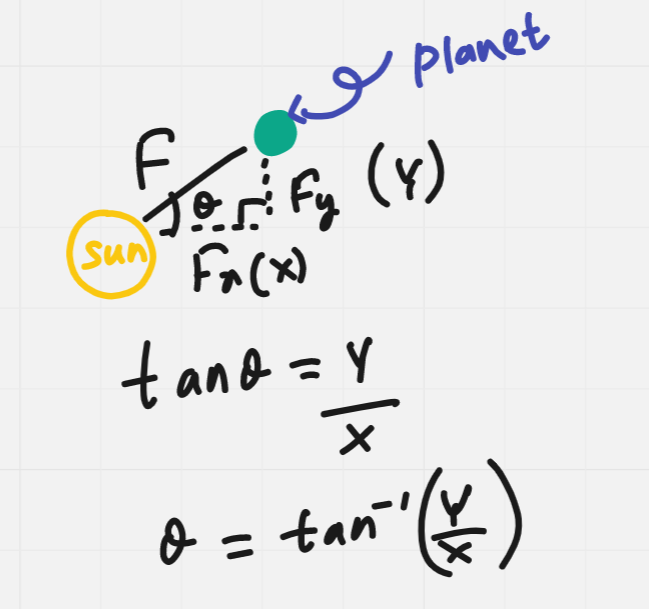 planet
F
θ
Fy (Y)
sun
Fx (X)
tanθ = Y/X
θ = tan⁻¹(Y/X)